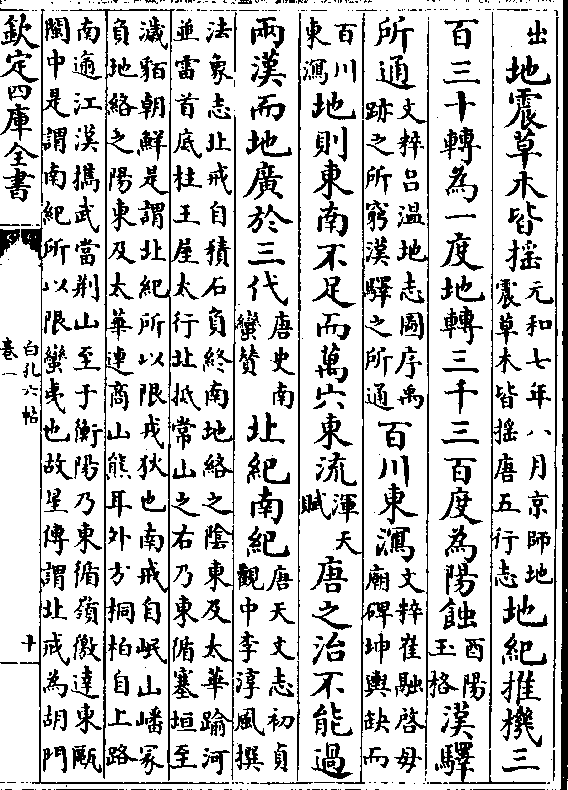 出地震草木皆揺元和七年八月京師地
震草木皆揺唐五行志地紀推機三
百三十轉為一度地轉三千三百度為陽蝕酉陽
玉格漢驛
所通文粹吕温地志圖序禹
跡之所窮漢驛之所通百川東瀉文粹崔融啓母
廟碑坤輿缺而
百川
東瀉地則東南不足而萬穴東流渾天
賦唐之治不能過
兩漢而地廣於三代唐史南
蠻贊北紀南紀唐天文志初貞
觀中李淳風撰
法象志北戒自積石負終南地絡之陰東及太華踰河
並雷首底柱王屋太行北抵常山之右乃東循塞垣至
濊貊朝鮮是謂北紀所以限戎狄也南戒自岷山嶓冢
負地絡之陽東及太華連商山熊耳外方桐柏自上路
南逾江漢攜武當荆山至于衡陽乃東循嶺徼達東甌
閩中是謂南紀所以限蠻夷也故星傳謂北戒為胡門
欽定四庫全書
白孔六帖
卷一
十